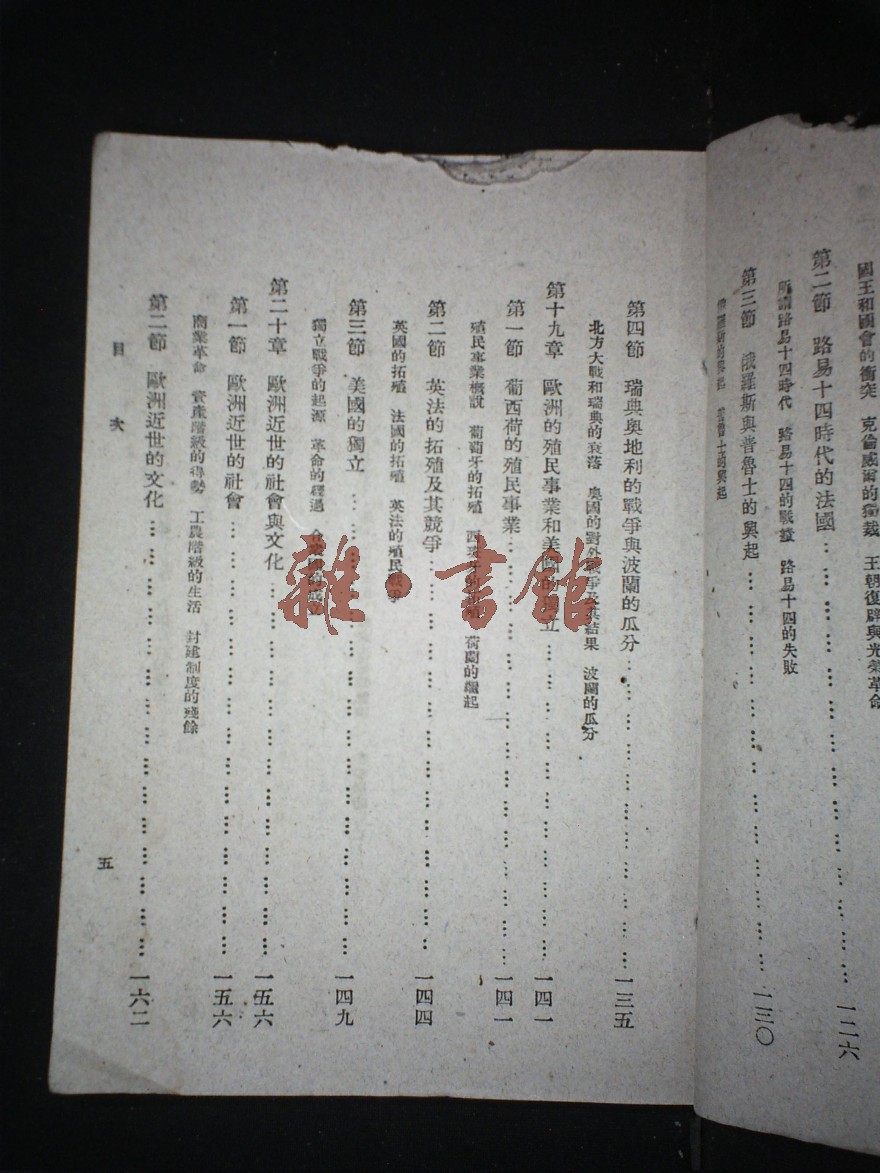 國王和國會的衝突　克倫威爾的獨裁　王朝復辟與光榮革命
第二節　路易十四時代的法國……一二六
所謂路易十四時代　路易十四的戰蹟　路易十四的失敗
第三節　俄羅斯與普魯士的興起……一三〇
第四節　瑞典奧地利的戰爭與波蘭的瓜分……一三五
北方大戰和瑞典的衰落　奧國的對外戰爭及其結果　波蘭的瓜分
第十九章　歐洲的殖民事業和美國的獨立……一四一
第一節　葡西荷的殖民事業……一四一
殖民事業概說　葡萄牙的拓殖　西班牙的拓殖　荷蘭的繼起
第二節　英法的拓殖及其競爭……一四四
英國的拓殖　法國的拓殖　英法的殖民戰爭
第三節　美國的獨立……一四九
獨立戰爭的起源　革命的經過　合衆國的成立
第二十章　歐洲近世的社會與文化……一五六
第一節　歐洲近世的社會……一五六
商業革命　資產階級的得勢　工農階級的生活　封建制度的殘餘
第二節　歐洲近世的文化……一六二
目　次
五
雜·書館